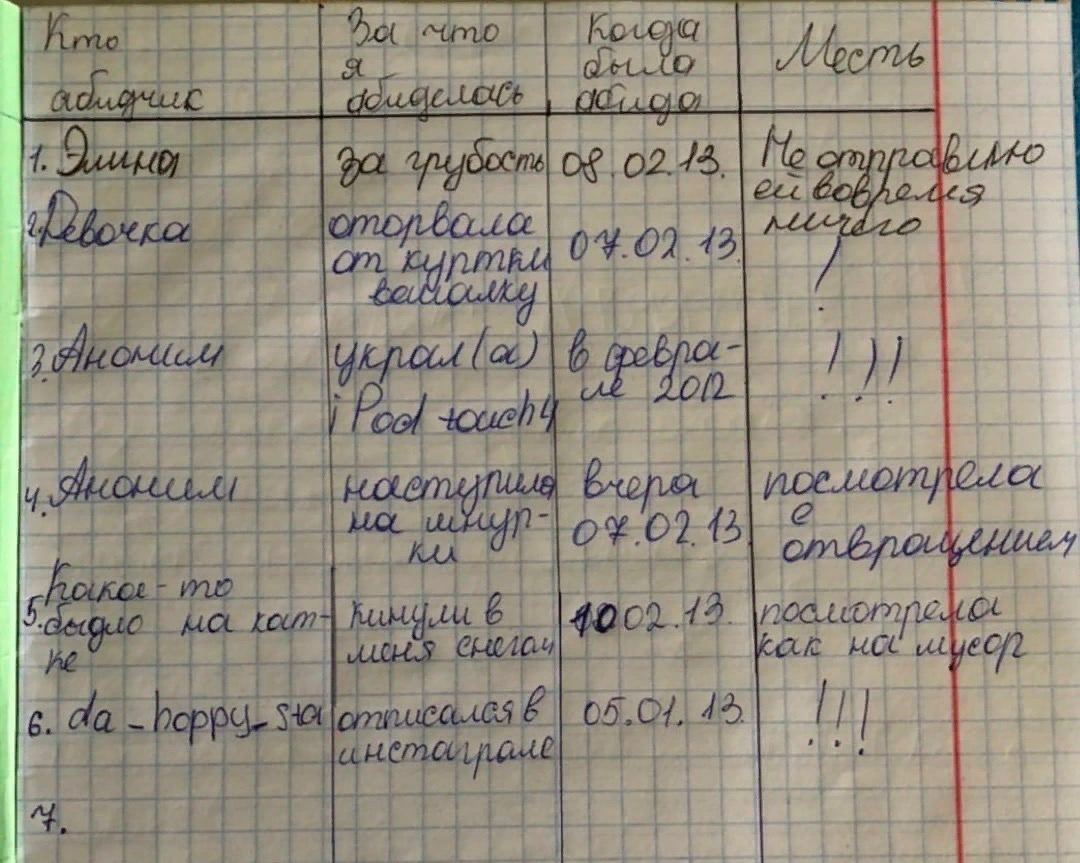 Кто
абидчик
За что
я
абиделась
Когда
была
абида
Месть
1. Элина
за грубость
08.02.13.
Не отправлю
ей вовремя
ничего
2. Девочка
оторвала
от куртки
вашалку
07.02.13.
!
3. Аноним
украл(а)
iPod touch 4
в февра-
ле 2012
!!!
4. Аноним
наступила
на шнур-
ки
вчера
07.02.13
посмотрела
с
отвращением
Какое-то
5. быдло на кат-
ке
кинули в
меня снегом
10 02.13.
посмотрела
как на мусор
6. da_hoppy_sta
отписался в
инстаграме
05.01.13.
!!!
7.